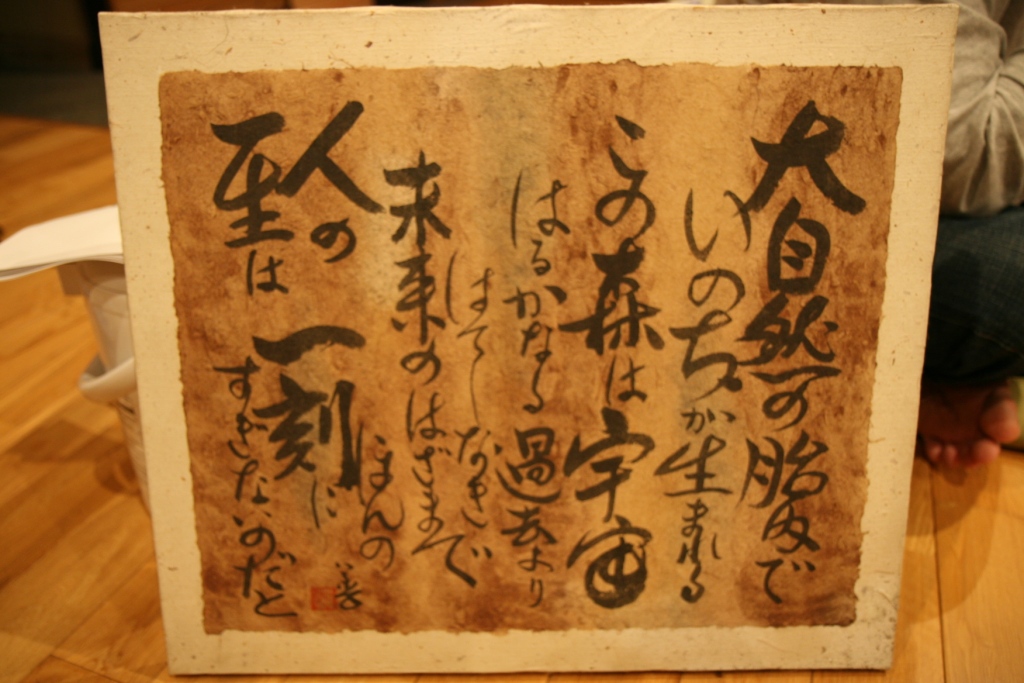 大自然の胎内で
いのちが生まれる
この森は宇宙
はるかなる過去より
はてしなき
未来のはざまで
人の
一生は
ほんの
一刻に
すぎないのだと
善